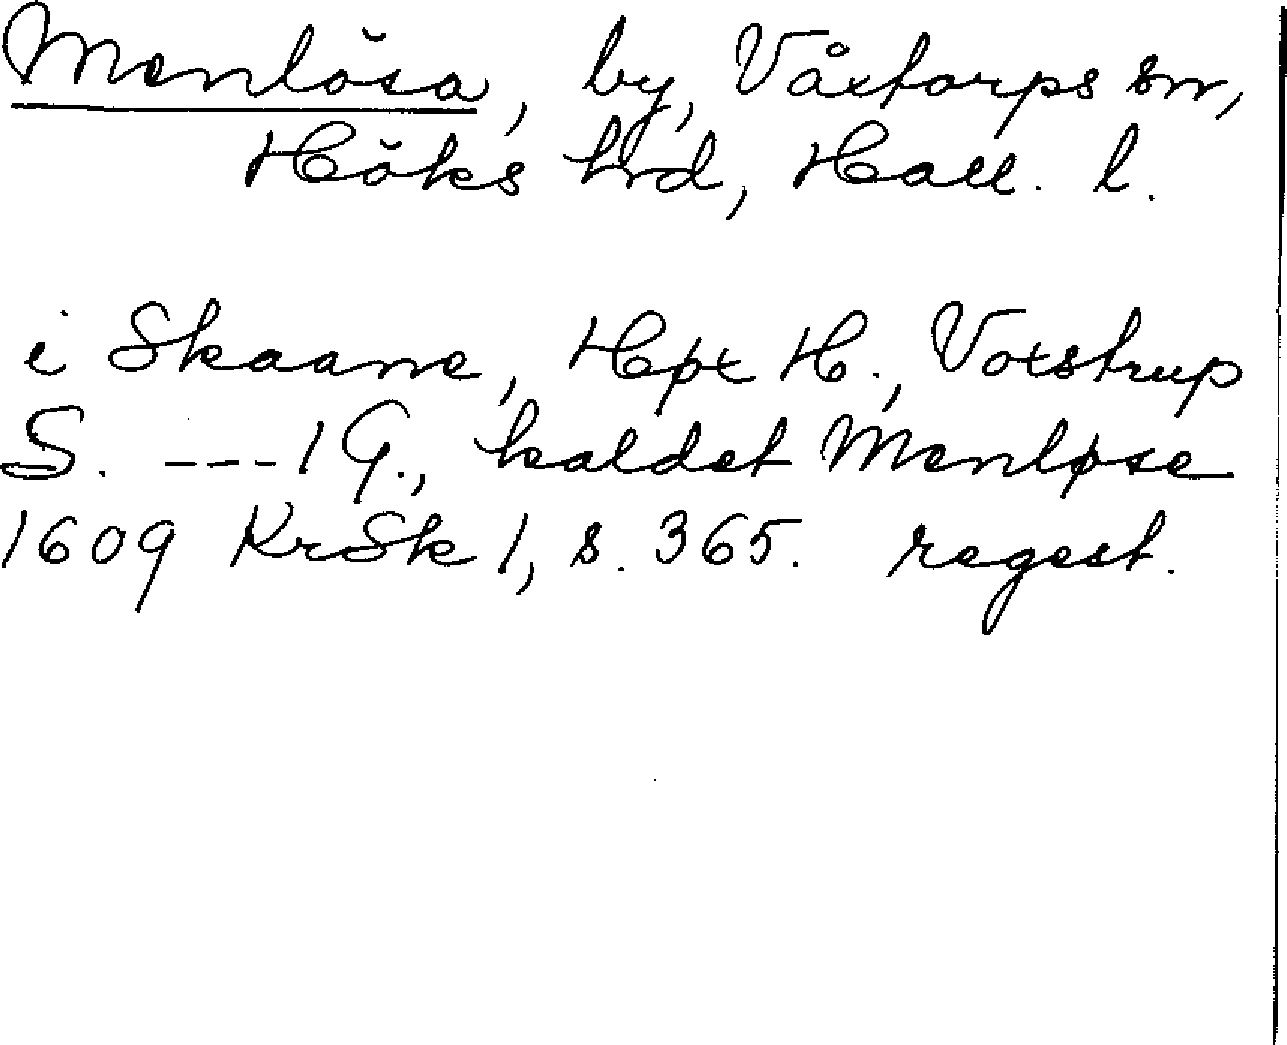 Menlösa, by, Våxtorps sn,
Höks hrd, Hall. l.
i Skaane, Høx H., Voxstrup
S. ---1 G., kaldet Menløse
1609 KrSk 1, s. 365. regest.